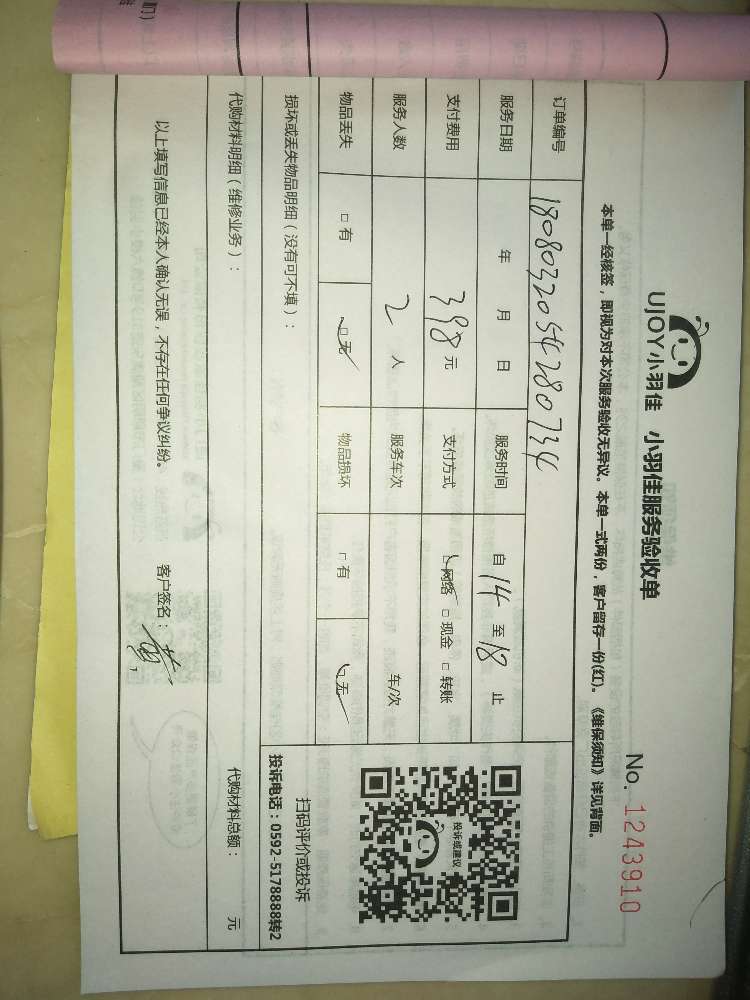 UJOY小羽佳 小羽佳服务验收单
No. 1243910
本单一经核签，即视为对本次服务验收无异议。本单一式两份，客户留存一份(红)。《维保须知》详见背面。
订单编号 1808032054280734
服务日期 年 月 日 服务时间 自 14 至 18 止
支付费用 398 元 支付方式 □网络 □现金 □转账
服务人数 2 人 服务车次 车/次
物品丢失 □有 □无 物品损坏 □有 □无
投诉或建议
损坏或丢失物品明细（没有可不填）：
扫码评价或投诉
投诉电话：0592-5178888转2
代购材料明细（维修业务）： 代购材料总额： 元
以上填写信息已经本人确认无误，不存在任何争议纠纷。 客户签名：